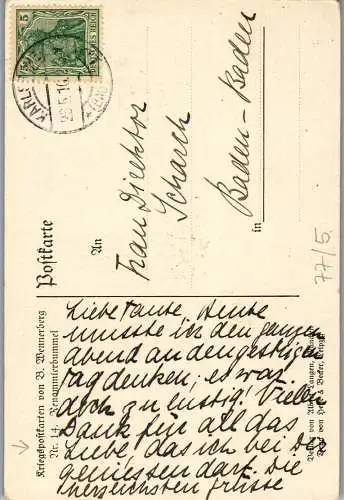 5
DEUTSCHES REICH
Postkarte
An
Frau Direktor
Scharch
in Baden-Baden
77/5.
Kriegspostkarten von B. Wennerberg
Nr. 14. Renommierbummel
Liebe Tante. Heute
musste ich den ganzen
abend an den gestrigen
tag denken; es war
doch zu lustig! Vielen
Dank für all das
Liebe, das ich bei Dir
geniessen darf. Die
herzlichsten grüsse